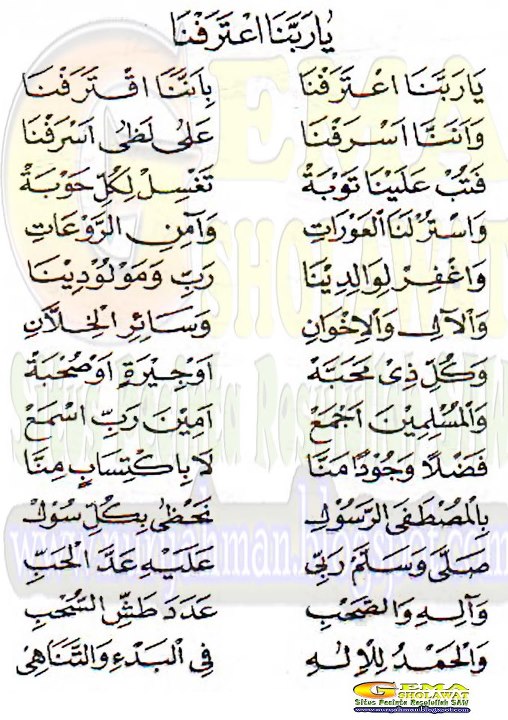 يَارَبَّنَا اعْتَرَفْنَا
يَارَبَّنَا اعْتَرَفْنَا بِاَنَّنَا اقْتَرَفْنَا
وَاَنَّنَا اَسْرَفْنَا عَلٰى لَظٰى اَسْرَفْنَا
فَتُبْ عَلَيْنَا تَوْبَةْ تَغْسِلْ لِكُلِّ حَوْبَةْ
وَاسْتُرْ لَنَا الْعَوْرَاتِ وَآمِنِ الرَّوْعَاتِ
وَاغْفِرْ لِوَالِدِيْنَا رَبِّ وَمَوْلُوْدِيْنَا
وَالْآلِ وَالْاِخْوَانِ وَسَائِرِ الْخِلَّانِ
وَكُلِّ ذِىْ مَحَبَّةْ اَوْجِيْرَةٍ اَوْصُحْبَةْ
وَالْمُسْلِمِيْنَ اَجْمَعْ اَمِيْنَ رَبِّ اسْمَعْ
فَضْلًا وَجُوْدًا مَنَّا لَابِاكْتِسَابٍ مِنَّا
بِالْمُصْطَفَى الرَّسُوْلِ نَحْظٰى بِكُلِّ سُوْلِ
صَلَّى وَسَلَّمْ رَبِّيْ عَلَيْهِ عَدَّ الْحَبِّ
وَآلِهِ وَالصَّحْبِ عَدَدَ طَشِّ السُّحْبِ
وَالْحَمْدُ لِلْاِلٰهِ فِى الْبَدْءِ وَالتَّنَاهِىْ
GEMA SHOLAWAT
Situs Pecinta Rosulullah SAW
www.nurulrahman.blogspot.com
GEMA
SHOLAWAT
Situs Pecinta Rosulullah SAW
www.nurulrahman.blogspot.com